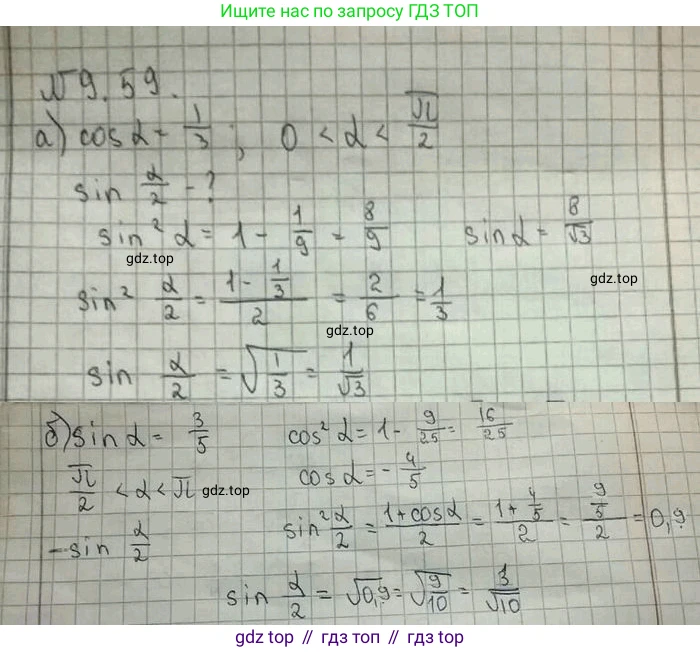 Ищите нас по запросу ГДЗ ТОП
№ 9.59.
а) cos α = 1/3 ; 0 < α < π/2
sin α/2 - ?
sin² α = 1 - 1/9 = 8/9 sin α = 8/√3
gdz.top
sin² α/2 = (1 - 1/3)/2 = 2/6 = 1/3
gdz.top
gdz.top
sin α/2 = √(1/3) = 1/√3
б) sin α = 3/5 cos² α = 1 - 9/25 = 16/25
π/2 < α < π cos α = - 4/5
gdz.top
- sin α/2 sin² α/2 = (1 + cos α)/2 = (1 + 4/5)/2 = (9/5)/2 = 0,9
gdz.top
sin α/2 = √0,9 = √(9/10) = 3/√10
gdz.top // гдз.топ // gdz.top